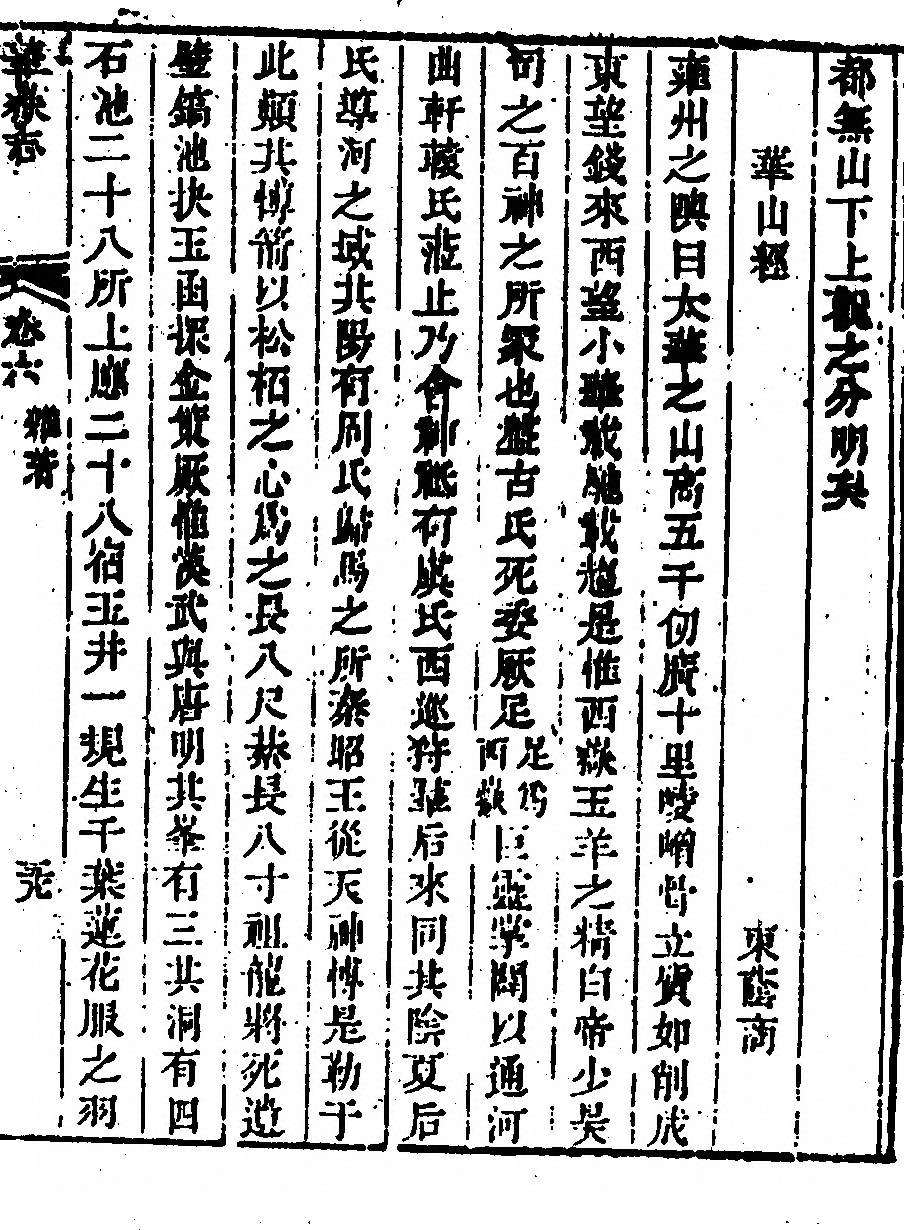 都無山下上觀之分明矣
華山經　東蔭商
雍州之鎮曰太華之山高五千仞廣十里崚嶒骨立質如削成
東望錢來西望小華戴魄戴魂是惟西嶽玉羊之精白帝少昊
司之百神之所聚也盤古氏死委厥足足為西嶽巨靈擘開以通河
曲軒轅氏蒞止乃會神祗有虞氏西巡狩群后來同其陰夏后
氏導河之域其陽有周氏歸馬之所秦昭王從天神博是勒于
此顛其博箭以松栢之心為之長八尺棊長八寸祖龍將死遺
璧鎬池抉玉函探金策厥惟漢武與唐明其峯有三其洞有四
石池二十八所上應二十八宿玉井一規生千葉蓮花服之羽
華嶽志　卷六　雜著